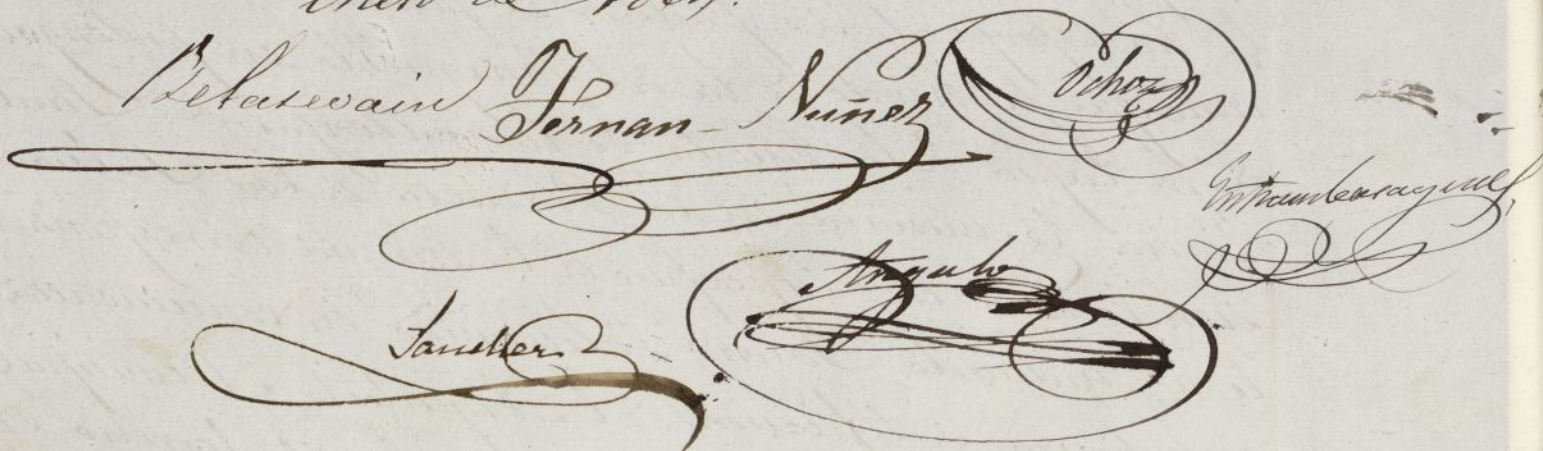 de
Belascoain Fernan-Nuñez Ochoa
Entrambasaguas
Angulo
Sanchez